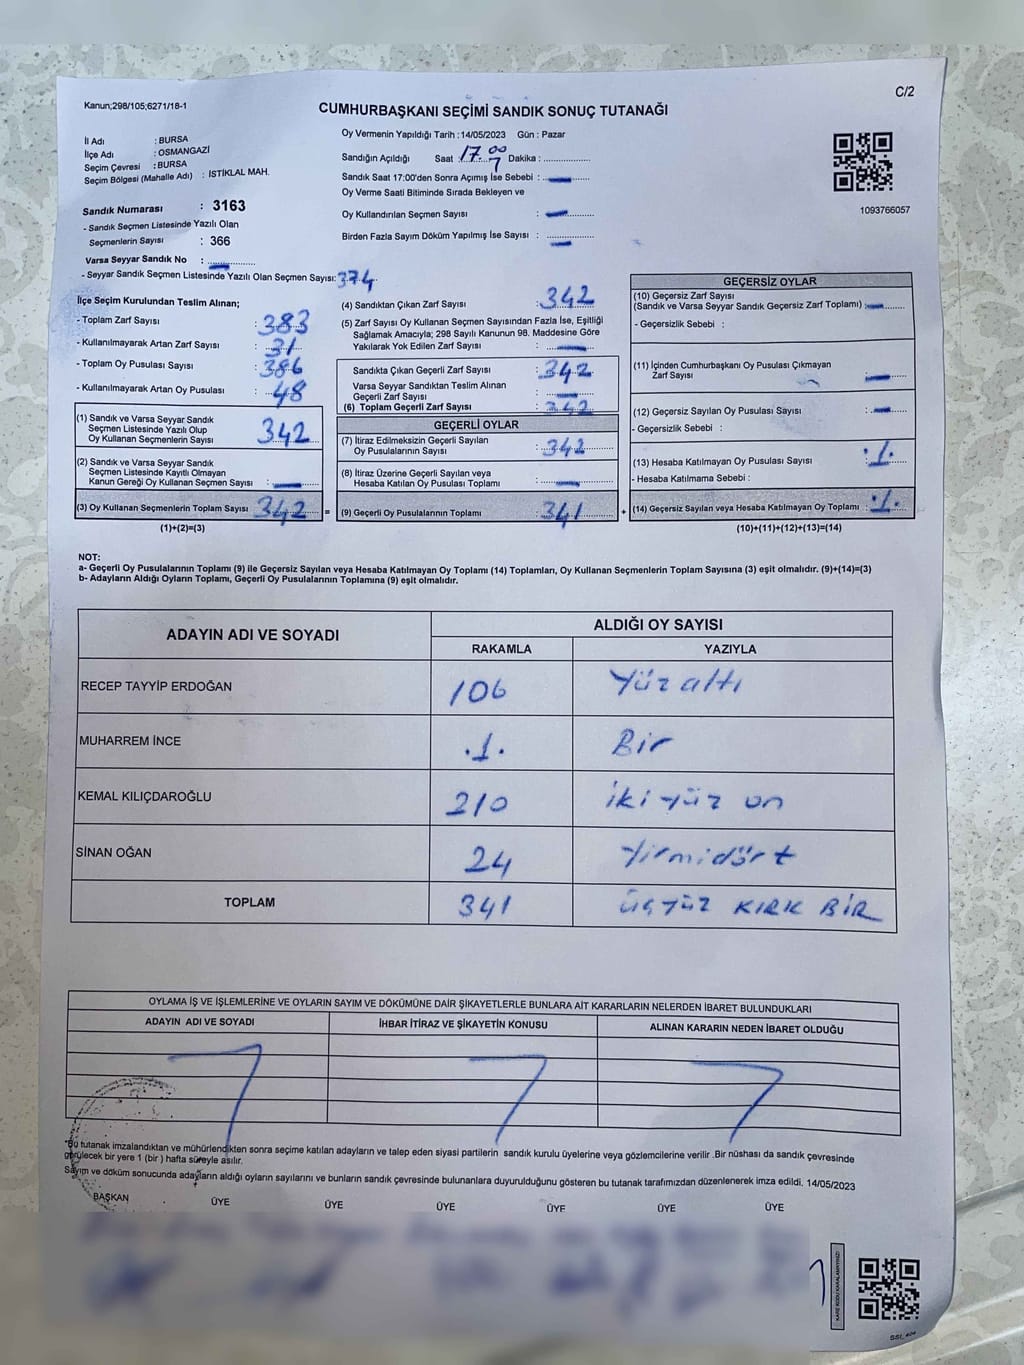 C/2
Kanun;298/105;6271/18-1
CUMHURBAŞKANI SEÇİMİ SANDIK SONUÇ TUTANAĞI
İl Adı : BURSA
İlçe Adı : OSMANGAZİ
Seçim Çevresi : BURSA
Seçim Bölgesi (Mahalle Adı) : İSTİKLAL MAH.
Sandık Numarası : 3163
- Sandık Seçmen Listesinde Yazılı Olan
Seçmenlerin Sayısı : 366
Varsa Seyyar Sandık No :
- Seyyar Sandık Seçmen Listesinde Yazılı Olan Seçmen Sayısı: 374
Oy Vermenin Yapıldığı Tarih : 14/05/2023 Gün : Pazar
Sandığın Açıldığı Saat : 17.00 Dakika :
Sandık Saat 17:00'den Sonra Açımış İse Sebebi : —
Oy Verme Saati Bitiminde Sırada Bekleyen ve
Oy Kullandırılan Seçmen Sayısı : —
Birden Fazla Sayım Döküm Yapılmış İse Sayısı : —
1093766057
İlçe Seçim Kurulundan Teslim Alınan;
- Toplam Zarf Sayısı : 383
- Kullanılmayarak Artan Zarf Sayısı : 31
- Toplam Oy Pusulası Sayısı : 386
- Kullanılmayarak Artan Oy Pusulası : 48
(1) Sandık ve Varsa Seyyar Sandık
Seçmen Listesinde Yazılı Olup
Oy Kullanan Seçmenlerin Sayısı : 342
(2) Sandık ve Varsa Seyyar Sandık
Seçmen Listesinde Kayıtlı Olmayan
Kanun Gereği Oy Kullanan Seçmen Sayısı : —
(3) Oy Kullanan Seçmenlerin Toplam Sayısı : 342 =
(1)+(2)=(3)
(4) Sandıktan Çıkan Zarf Sayısı : 342
(5) Zarf Sayısı Oy Kullanan Seçmen Sayısından Fazla İse, Eşitliği
Sağlamak Amacıyla; 298 Sayılı Kanunun 98. Maddesine Göre
Yakılarak Yok Edilen Zarf Sayısı : —
Sandıkta Çıkan Geçerli Zarf Sayısı : 342
Varsa Seyyar Sandıktan Teslim Alınan
Geçerli Zarf Sayısı : —
(6) Toplam Geçerli Zarf Sayısı : 342
GEÇERLİ OYLAR
(7) İtiraz Edilmeksizin Geçerli Sayılan
Oy Pusulalarının Sayısı : 342
(8) İtiraz Üzerine Geçerli Sayılan veya
Hesaba Katılan Oy Pusulası Toplamı : —
(9) Geçerli Oy Pusulalarının Toplamı : 341 +
GEÇERSİZ OYLAR
(10) Geçersiz Zarf Sayısı
(Sandık ve Varsa Seyyar Sandık Geçersiz Zarf Toplamı) : —
- Geçersizlik Sebebi :
(11) İçinden Cumhurbaşkanı Oy Pusulası Çıkmayan
Zarf Sayısı : —
(12) Geçersiz Sayılan Oy Pusulası Sayısı : —
- Geçersizlik Sebebi :
(13) Hesaba Katılmayan Oy Pusulası Sayısı : .1.
- Hesaba Katılmama Sebebi :
(14) Geçersiz Sayılan veya Hesaba Katılmayan Oy Toplamı : .1.
(10)+(11)+(12)+(13)=(14)
NOT:
a- Geçerli Oy Pusulalarının Toplamı (9) ile Geçersiz Sayılan veya Hesaba Katılmayan Oy Toplamı (14) Toplamları, Oy Kullanan Seçmenlerin Toplam Sayısına (3) eşit olmalıdır. (9)+(14)=(3)
b- Adayların Aldığı Oyların Toplamı, Geçerli Oy Pusulalarının Toplamına (9) eşit olmalıdır.
ADAYIN ADI VE SOYADI ALDIĞI OY SAYISI
RAKAMLA YAZIYLA
RECEP TAYYİP ERDOĞAN 106 Yüz altı
MUHARREM İNCE .1. Bir
KEMAL KILIÇDAROĞLU 210 iki yüz on
SİNAN OĞAN 24 Yirmidört
TOPLAM 341 üçyüz KIRK BİR
OYLAMA İŞ VE İŞLEMLERİNE VE OYLARIN SAYIM VE DÖKÜMÜNE DAİR ŞİKAYETLERLE BUNLARA AİT KARARLARIN NELERDEN İBARET BULUNDUKLARI
ADAYIN ADI VE SOYADI İHBAR İTİRAZ VE ŞİKAYETİN KONUSU ALINAN KARARIN NEDEN İBARET OLDUĞU
"Bu tutanak imzalandıktan ve mühürlendikten sonra seçime katılan adayların ve talep eden siyasi partilerin sandık kurulu üyelerine veya gözlemcilerine verilir .Bir nüshası da sandık çevresinde
görülecek bir yere 1 (bir ) hafta süreyle asılır.
Sayım ve döküm sonucunda adayların aldığı oyların sayılarını ve bunların sandık çevresinde bulunanlara duyurulduğunu gösteren bu tutanak tarafımızdan düzenlenerek imza edildi. 14/05/2023
BAŞKAN ÜYE ÜYE ÜYE ÜYE ÜYE ÜYE
KARE KODU KARALAMAYINIZ!